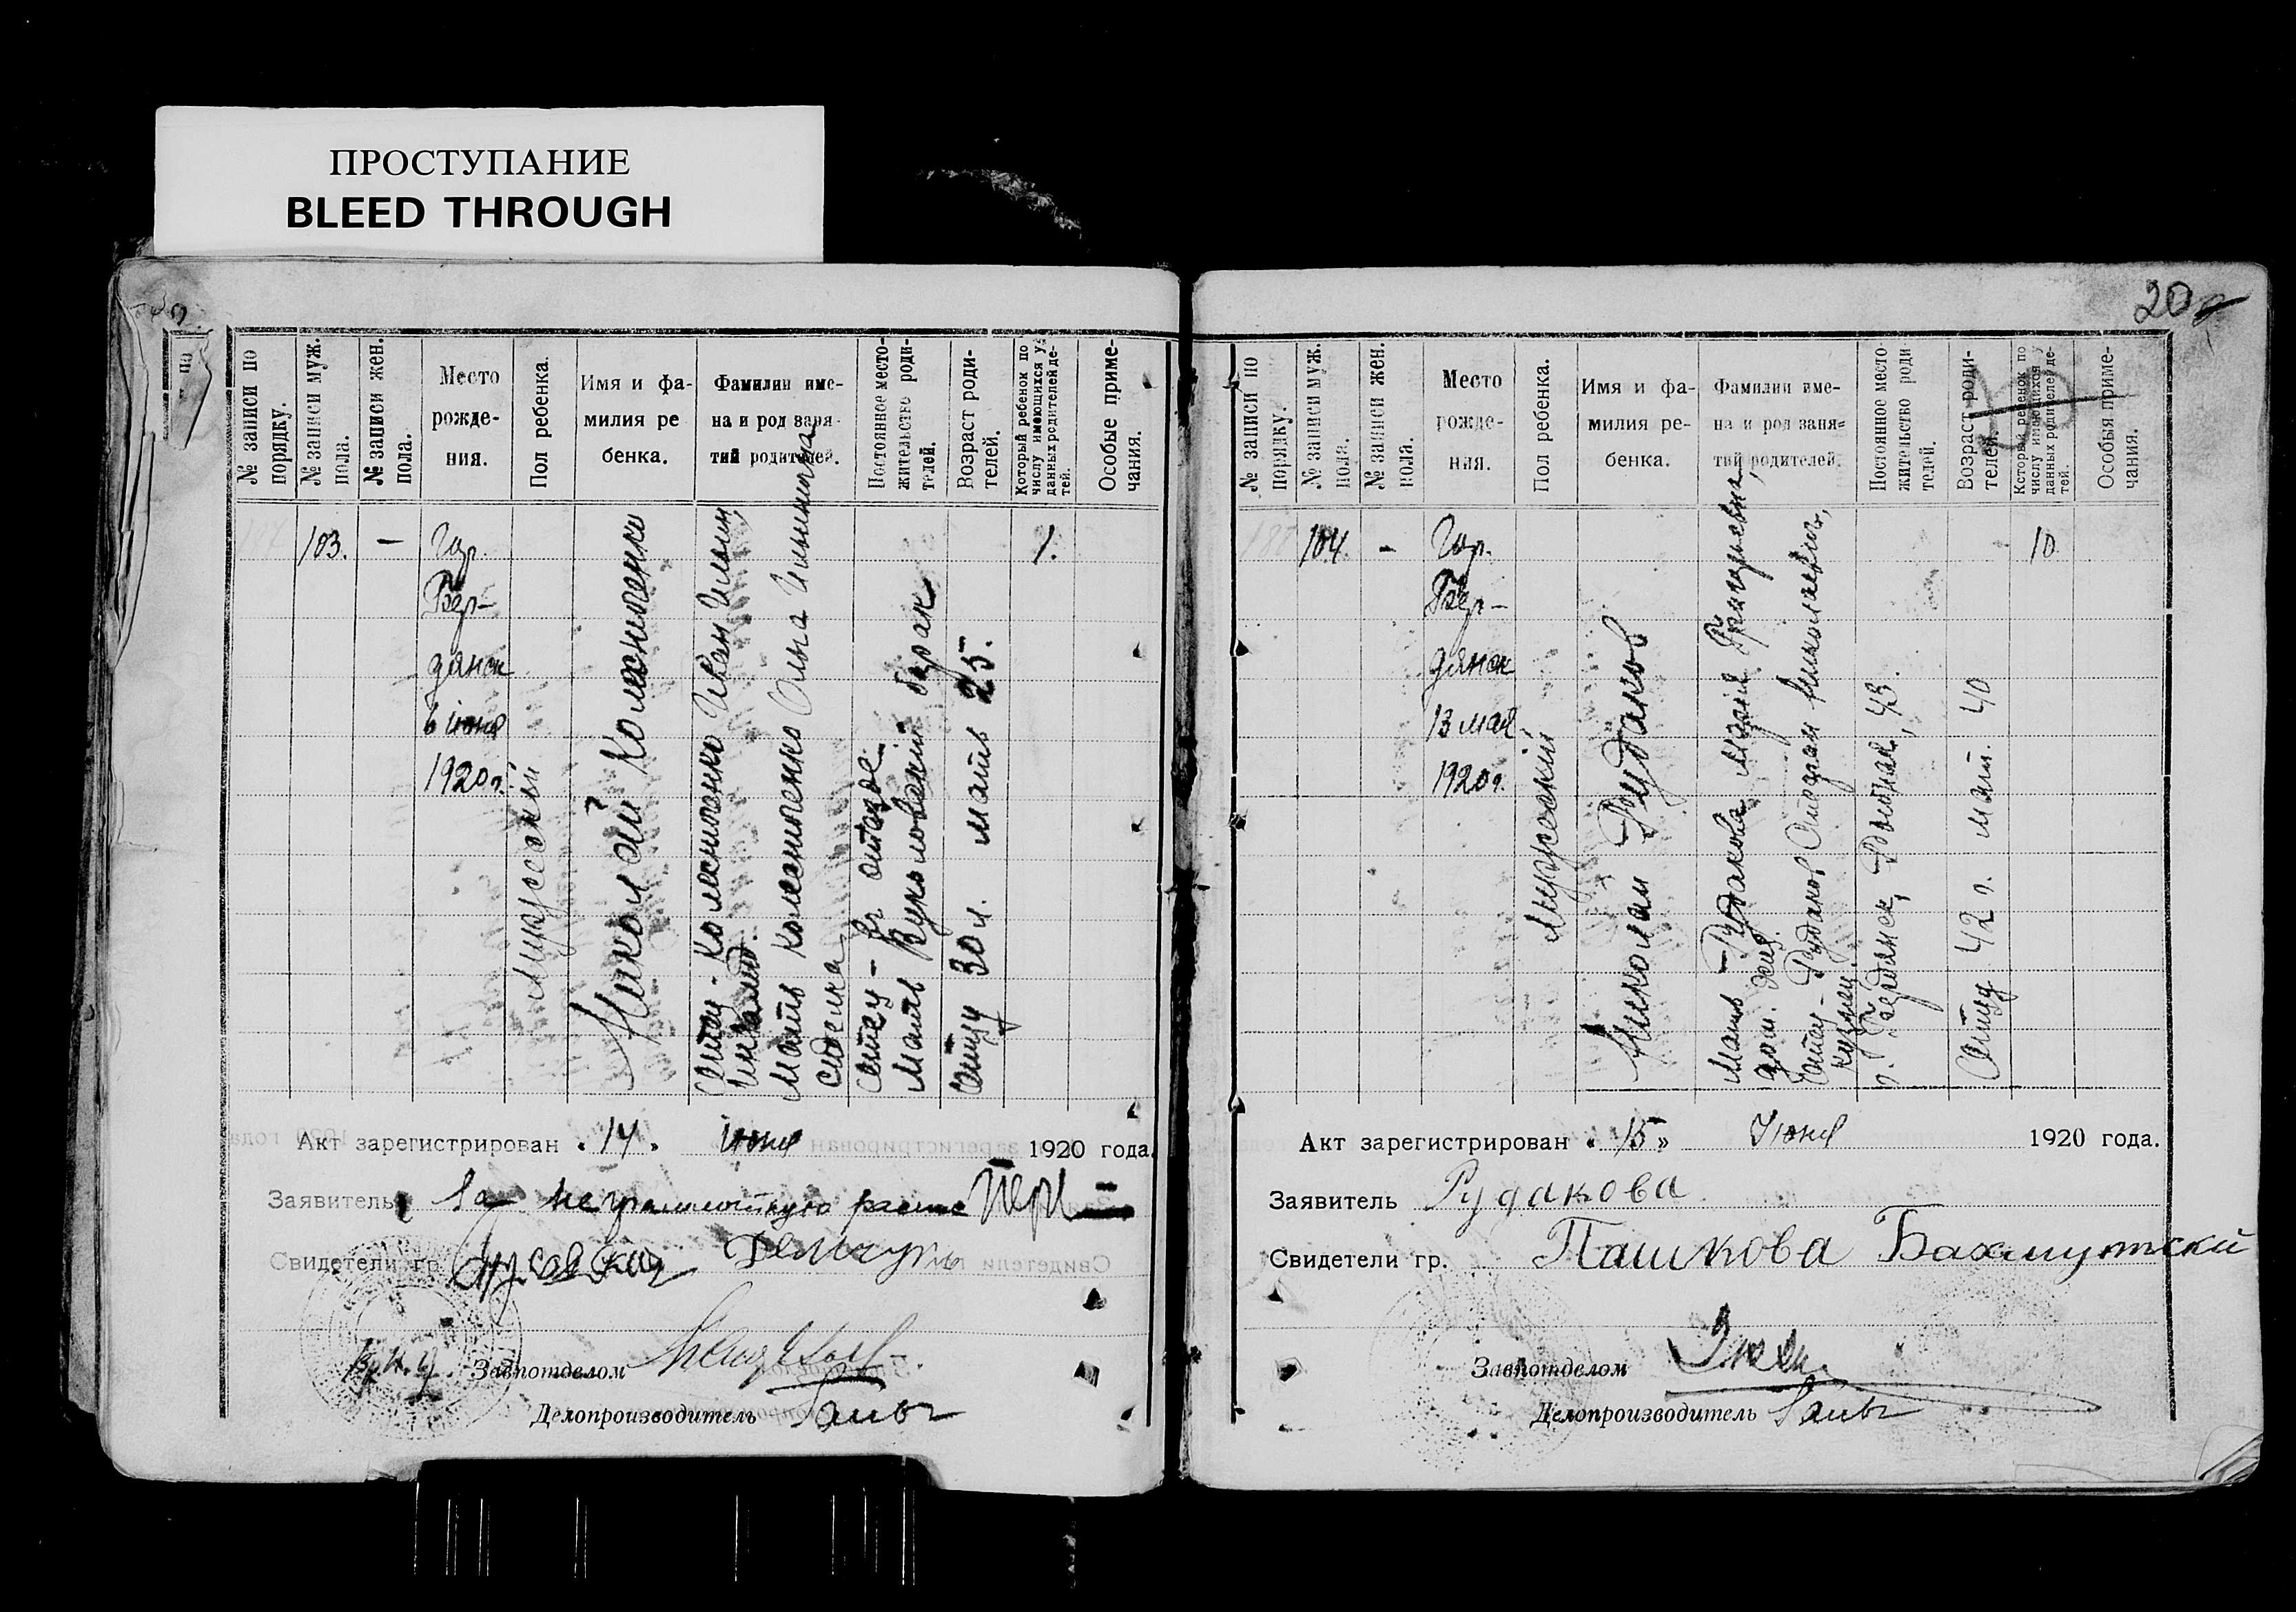 ПРОСТУПАНИЕ
BLEED THROUGH
№ записи по
порядку.
№ записи муж.
пола.
№ записи жен.
пола.
Место
рожде-
ния.
Пол ребенка.
Имя и фа-
милия ре
бенка.
Фамилии име-
на и род заня-
тий родителей.
Постоянное место-
жительство роди-
телей.
Возраст роди-
телей.
Который ребенок по
числу имеющихся у
данных родителей де-
тей.
Особые приме-
чания.
103.
—
Гор.
Бер-
дянск
6 июня
1920 г.
мужеский
Николай Колесниченко
Отец - Колесниченко Иван Ильич,
инвалид.
Мать Колесниченко Ольга Ильинична
сиделка
Отец -
Мать
барак
Отцу 30 л. мать 25.
1.
Акт зарегистрирован « 14 » июня 1920 года.
Заявитель За неграмотную распис
Свидетели гр.
Завпотделом
Делопроизводитель
20
№ записи по
порядку.
№ записи муж.
пола.
№ записи жен.
пола.
Место
рожде-
ния.
Пол ребенка.
Имя и фа-
милия ре-
бенка.
Фамилии име-
на и род заня-
тий родителей.
Постоянное место
жительство роди
телей.
Возраст роди-
телей.
Которы ребенок по
числу имеющихся у
данных родителей де-
тей.
Особыя приме-
чания.
188
104.
-
Гор.
Бер-
дянск
13 мая
1920 г.
Мужеский
Николай Рудаков
Мать - Рудакова Мария Григорьевна,
дом. хоз.
Отец - Рудаков Стефан Николаевич,
кузнец.
г. Бердянск, 43.
Отцу 42 г. мат. 40
10
Акт зарегистрирован « 15 » Июня 1920 года.
Заявитель Рудакова
Свидетели гр. Пашкова Бахмутский
Завпотделом
Делопроизводитель